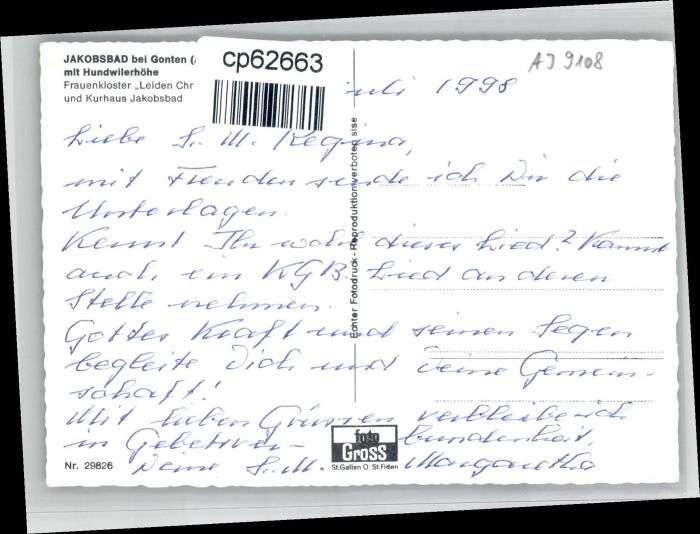 JAKOBSBAD bei Gonten (
mit Hundwilerhöhe
Frauenkloster „Leiden Chr
und Kurhaus Jakobsbad
cp62663
AJ 9108
Juli 1998
Liebe S. M. Regina,
mit Freuden sende ich Dir die
Unterlagen.
Kennt Ihr wohl dieses Lied? Kannst
auch ein KGB. Lied an deren
Stelle nehmen.
Gottes Kraft und seinen Segen
begleite Dich und Deine Gemein-
schaft!
Mit lieben Grüssen verbleibe ich
in Gebetsver- bundenheit,
Deine S. M. Margaretha
Echter Fotodruck - Reproduktion verboten
foto
Gross
St.Gallen O St.Fiden
Nr. 29826